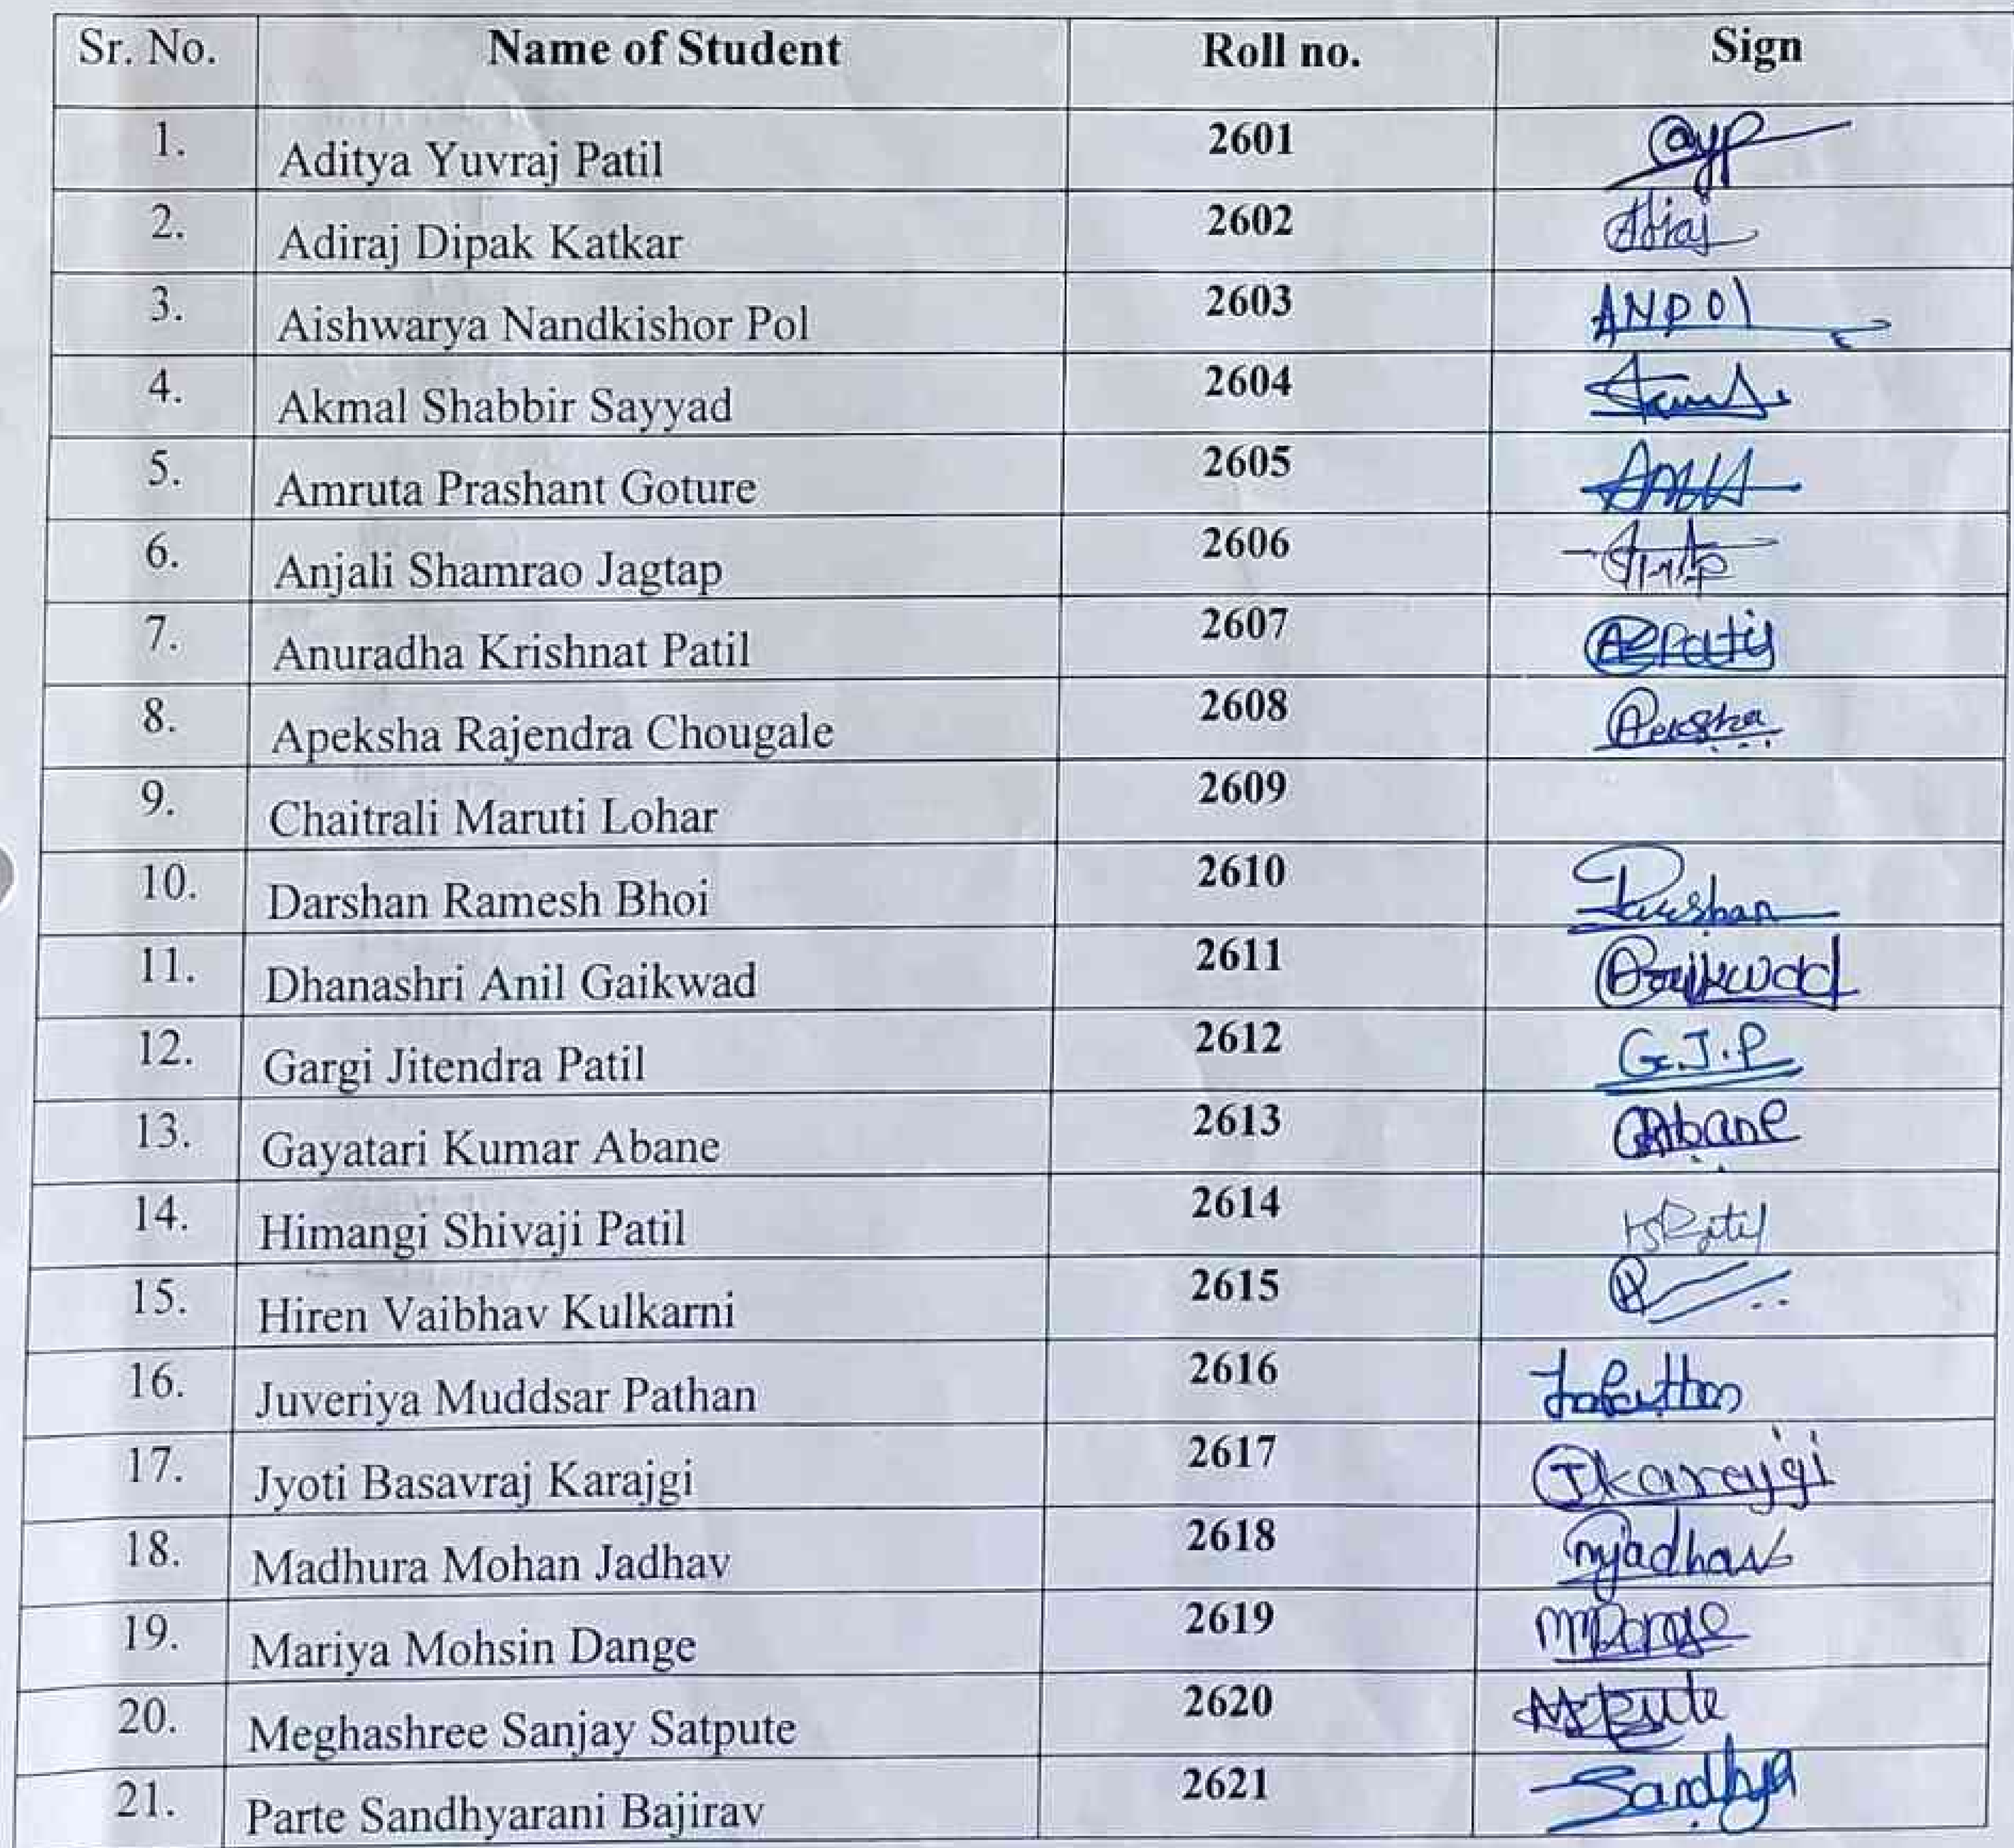 Sr. No. Name of Student Roll no. Sign
1. Aditya Yuvraj Patil 2601 ayp
2. Adiraj Dipak Katkar 2602
3. Aishwarya Nandkishor Pol 2603 ANPOl
4. Akmal Shabbir Sayyad 2604
5. Amruta Prashant Goture 2605
6. Anjali Shamrao Jagtap 2606
7. Anuradha Krishnat Patil 2607
8. Apeksha Rajendra Chougale 2608
9. Chaitrali Maruti Lohar 2609
10. Darshan Ramesh Bhoi 2610 Darshan
11. Dhanashri Anil Gaikwad 2611
12. Gargi Jitendra Patil 2612 G.J.P
13. Gayatari Kumar Abane 2613 GAbane
14. Himangi Shivaji Patil 2614 HSPatil
15. Hiren Vaibhav Kulkarni 2615
16. Juveriya Muddsar Pathan 2616
17. Jyoti Basavraj Karajgi 2617 Jkarajgi
18. Madhura Mohan Jadhav 2618 mjadhav
19. Mariya Mohsin Dange 2619 MMDange
20. Meghashree Sanjay Satpute 2620
21. Parte Sandhyarani Bajirav 2621 Sandhya